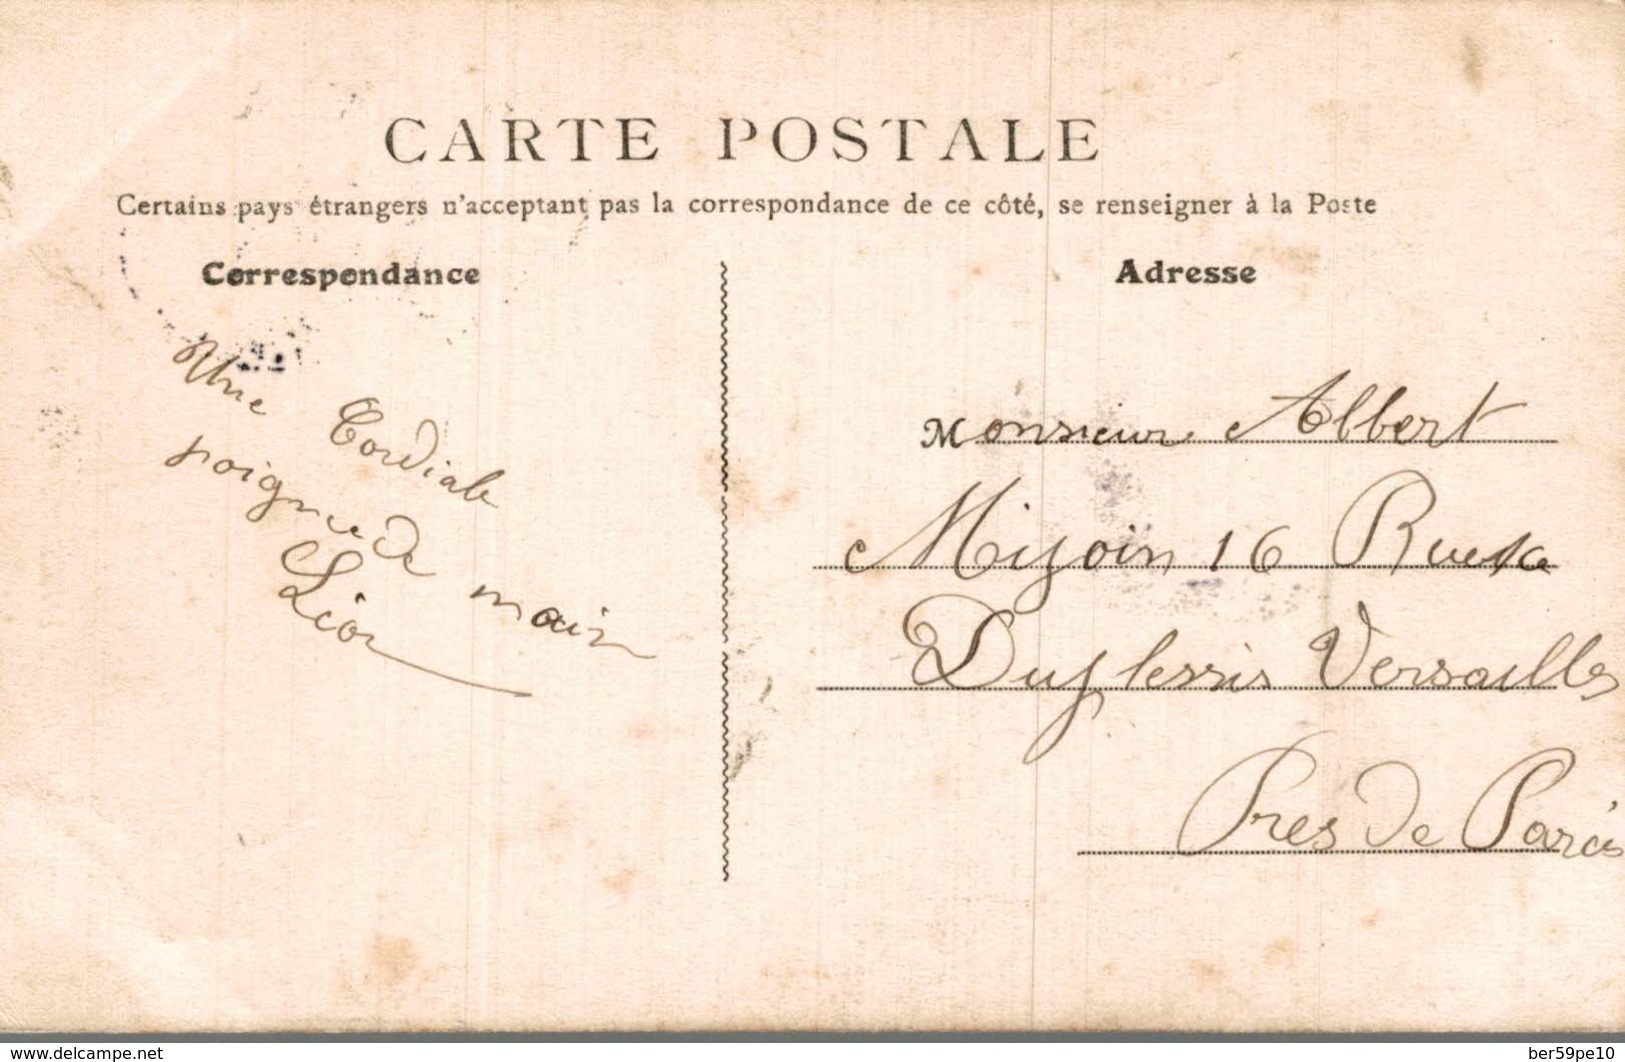 CARTE POSTALE
Certains pays étrangers n'acceptant pas la correspondance de ce côté, se renseigner à la Poste
Correspondance
Une Cordiale
poignée de main
Léon
Adresse
Monsieur Albert
Mijoin 16 Rue
Duplessis Versailles
Pres de Paris
www.delcampe.net
ber59pe10